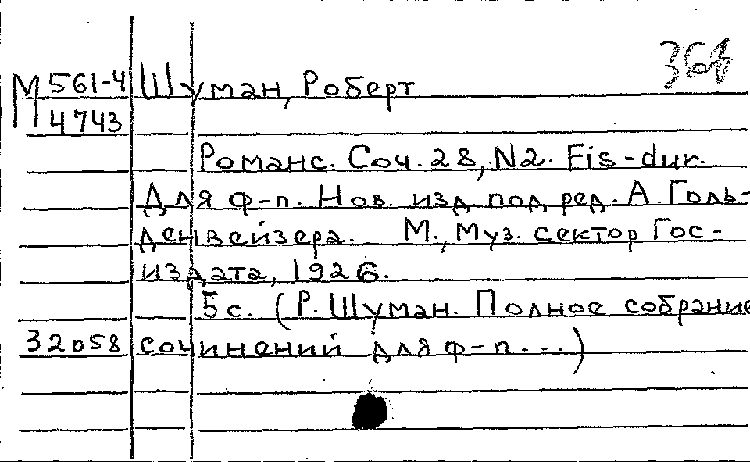 М 561-4
4743
Шуман, Роберт
Романс. Соч. 28, N2. Fis-dur.
Для ф-п. Нов. изд под ред. А. Голь-
денвейзера. М., Муз. сектор Гос-
издата, 1926.
5 с. (Р. Шуман. Полное собрание
32058 сочинений для ф-п. ...)